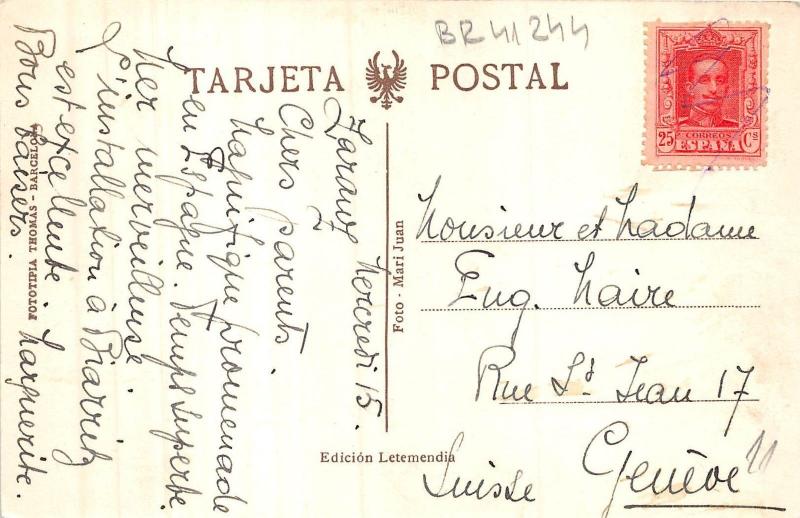 BR 41244
TARJETA POSTAL
25 CORREOS Cs
ESPAÑA
Zarauz Mercredi 15.
Chers parents.
Magnifique promenade
en Espagne. Temps superbe.
Mer merveilleuse.
L'installation à Biarritz
est excellente.
Bons baisers. Marguerite.
FOTOTIPIA THOMAS - BARCELONA
Foto - Mari Juan
Edición Letemendia
Monsieur et Madame
Eug. Maire
Rue St. Jean 17
Genève
Suisse